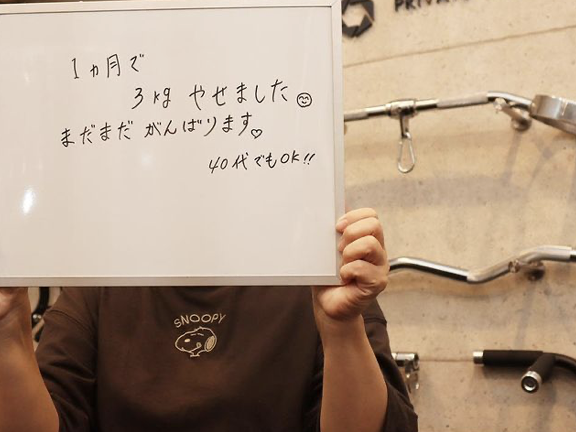 1ヵ月で
3kg やせました
まだまだ がんばります♡
40代でもOK!!
SNOOPY